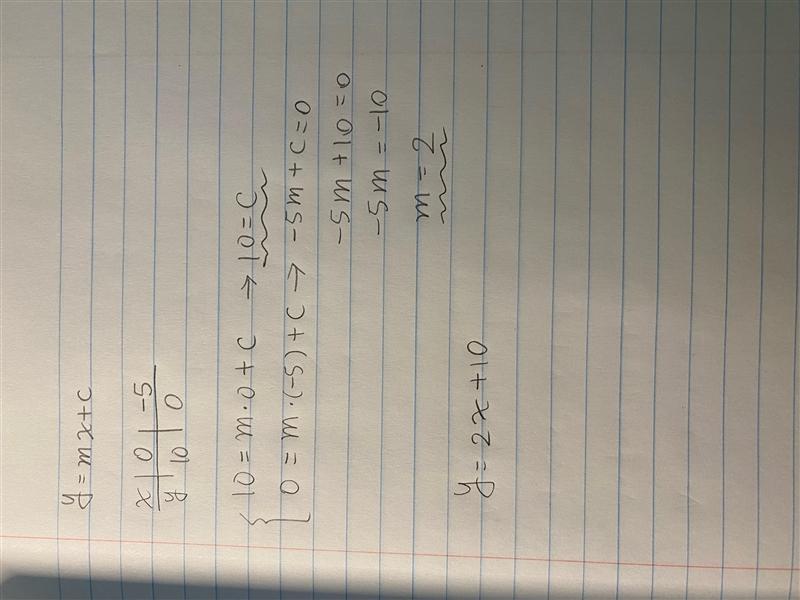 y = mx+c
x | 0 | -5
y | 10 | 0
10 = m·0+c → 10=c
0 = m·(-5)+c → -5m+c=0
-5m+10=0
-5m=-10
m=2
y=2x+10